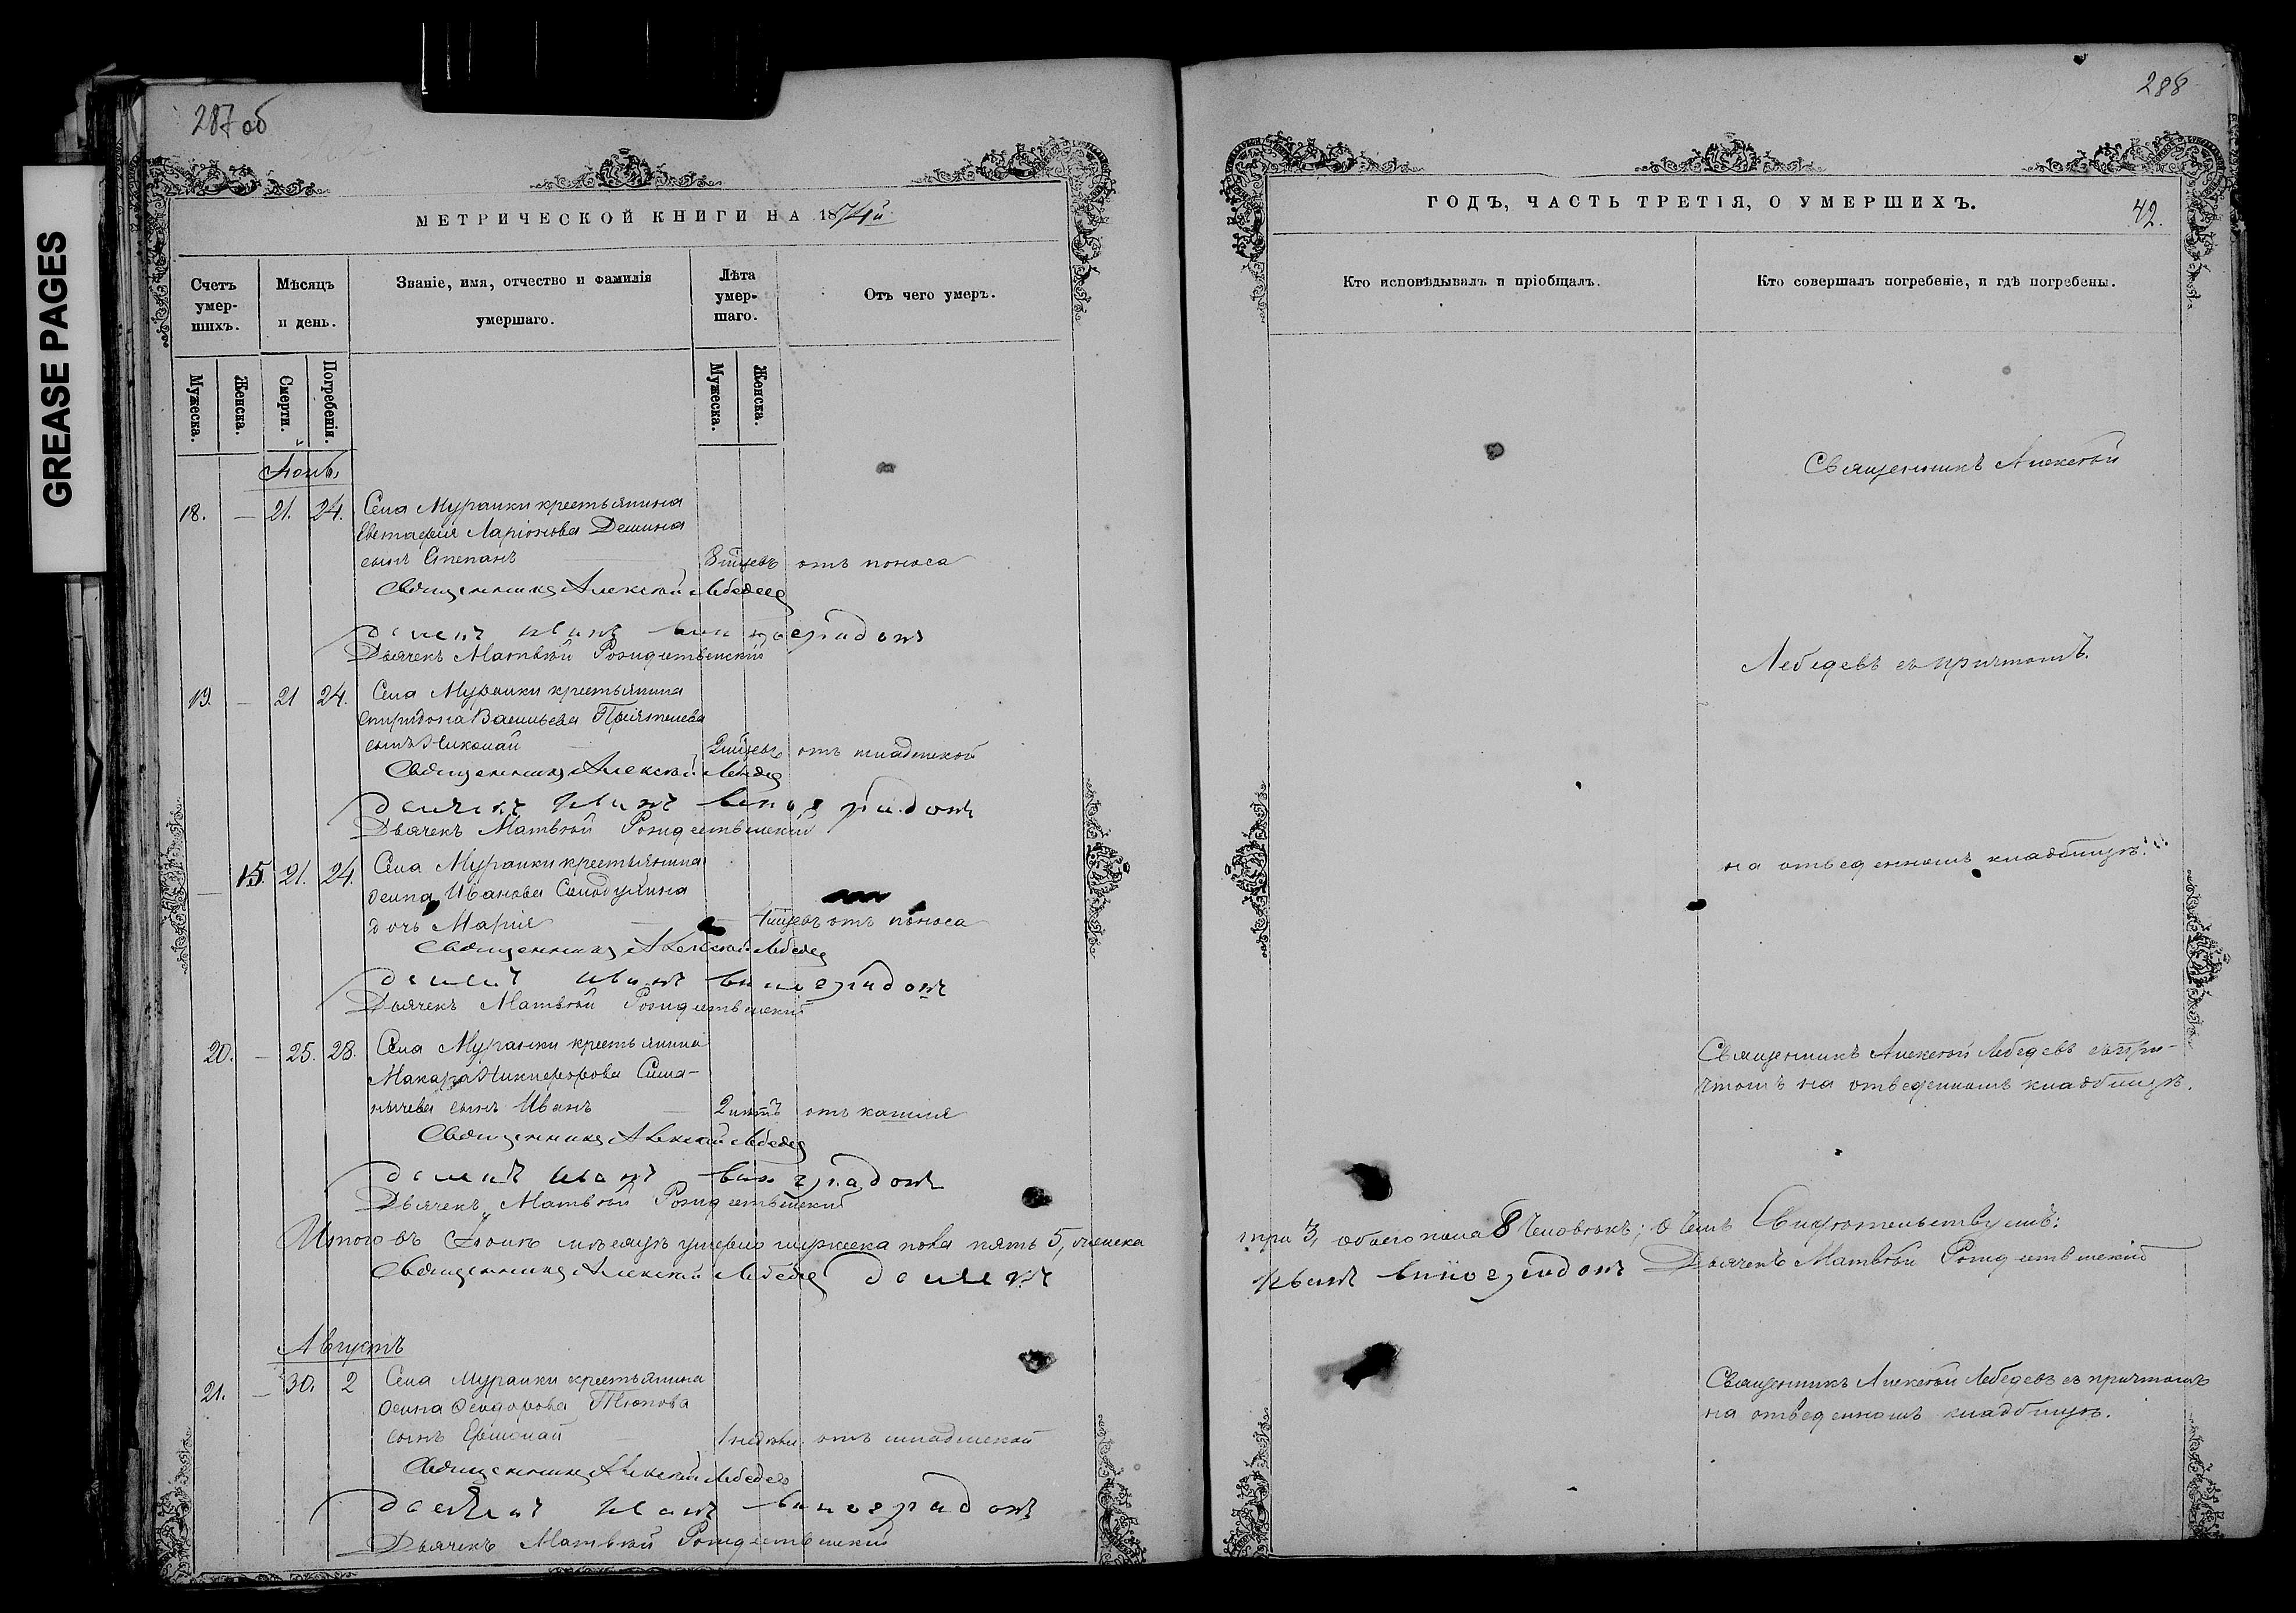 287 об
МЕТРИЧЕСКОЙ КНИГИ НА 1874й
Счетъ умер-шихъ.
Мѣсяцъ и день.
Званіе, имя, отчество и фамилія умершаго.
Лѣта умер-шаго.
Отъ чего умеръ.
Мужеска.
Женска.
Смерти.
Погребенія.
Мужеска.
Женска.
18. — 21. 24. Села Муранки крестьянина
Евстафія Ларіонова Демина
сынъ Степанъ отъ поноса
Священникъ Алексѣй Лебедев
Иванъ Виноградовъ
Дьячекъ Матвѣй Рождественскій
19. — 21 24. Села Муранки крестьянина
Спиридона Васильева Пріятелева
сынъ Николай отъ младенской
Священникъ Алексѣй Лебедев
Иванъ Виноградовъ
Дьячекъ Матвѣй Рождественскій
— 15. 21. 24. Села Муранки крестьянина
Осипа Иванова
дочь Марія отъ поноса
Священникъ Алексѣй Лебедев
Иванъ Виноградовъ
Дьячекъ Матвѣй Рождественскій
20. — 25. 28. Села Муранки крестьянина
Макара Никифорова Сима-
нычева сынъ Иванъ 2 лѣтъ отъ кашля
Священникъ Алексѣй Лебедев
Иванъ Виноградовъ
Дьячекъ Матвѣй Рождественскій
Итого въ мѣсяцѣ умерло мужеска пола пять 5, женска
Священникъ Алексѣй Лебедев
Августъ
21. — 30. 2 Села Муранки крестьянина
Осипа Ѳеодорова Тюпова
сынъ 1 недѣли. отъ младенской
Священникъ Алексѣй Лебедев
Иванъ Виноградовъ
Дьячекъ Матвѣй Рождественскій
288
ГОДЪ, ЧАСТЬ ТРЕТІЯ, О УМЕРШИХЪ.
42.
Кто исповѣдывалъ и пріобщалъ.
Кто совершалъ погребеніе, и гдѣ погребены.
Священникъ Алексѣй
Лебедевъ съ причтомъ.
на отведенномъ кладбищѣ.
Священникъ Алексѣй Лебедевъ съ при-
чтомъ на отведенномъ кладбищѣ.
три 3, обоего пола 8 человѣкъ; о чемъ свидѣтельствуемъ:
Иванъ Виноградовъ Дьячекъ Матвѣй Рождественскій
Священникъ Алексѣй Лебедевъ съ причтомъ
на отведенномъ кладбищѣ.
GREASE PAGES